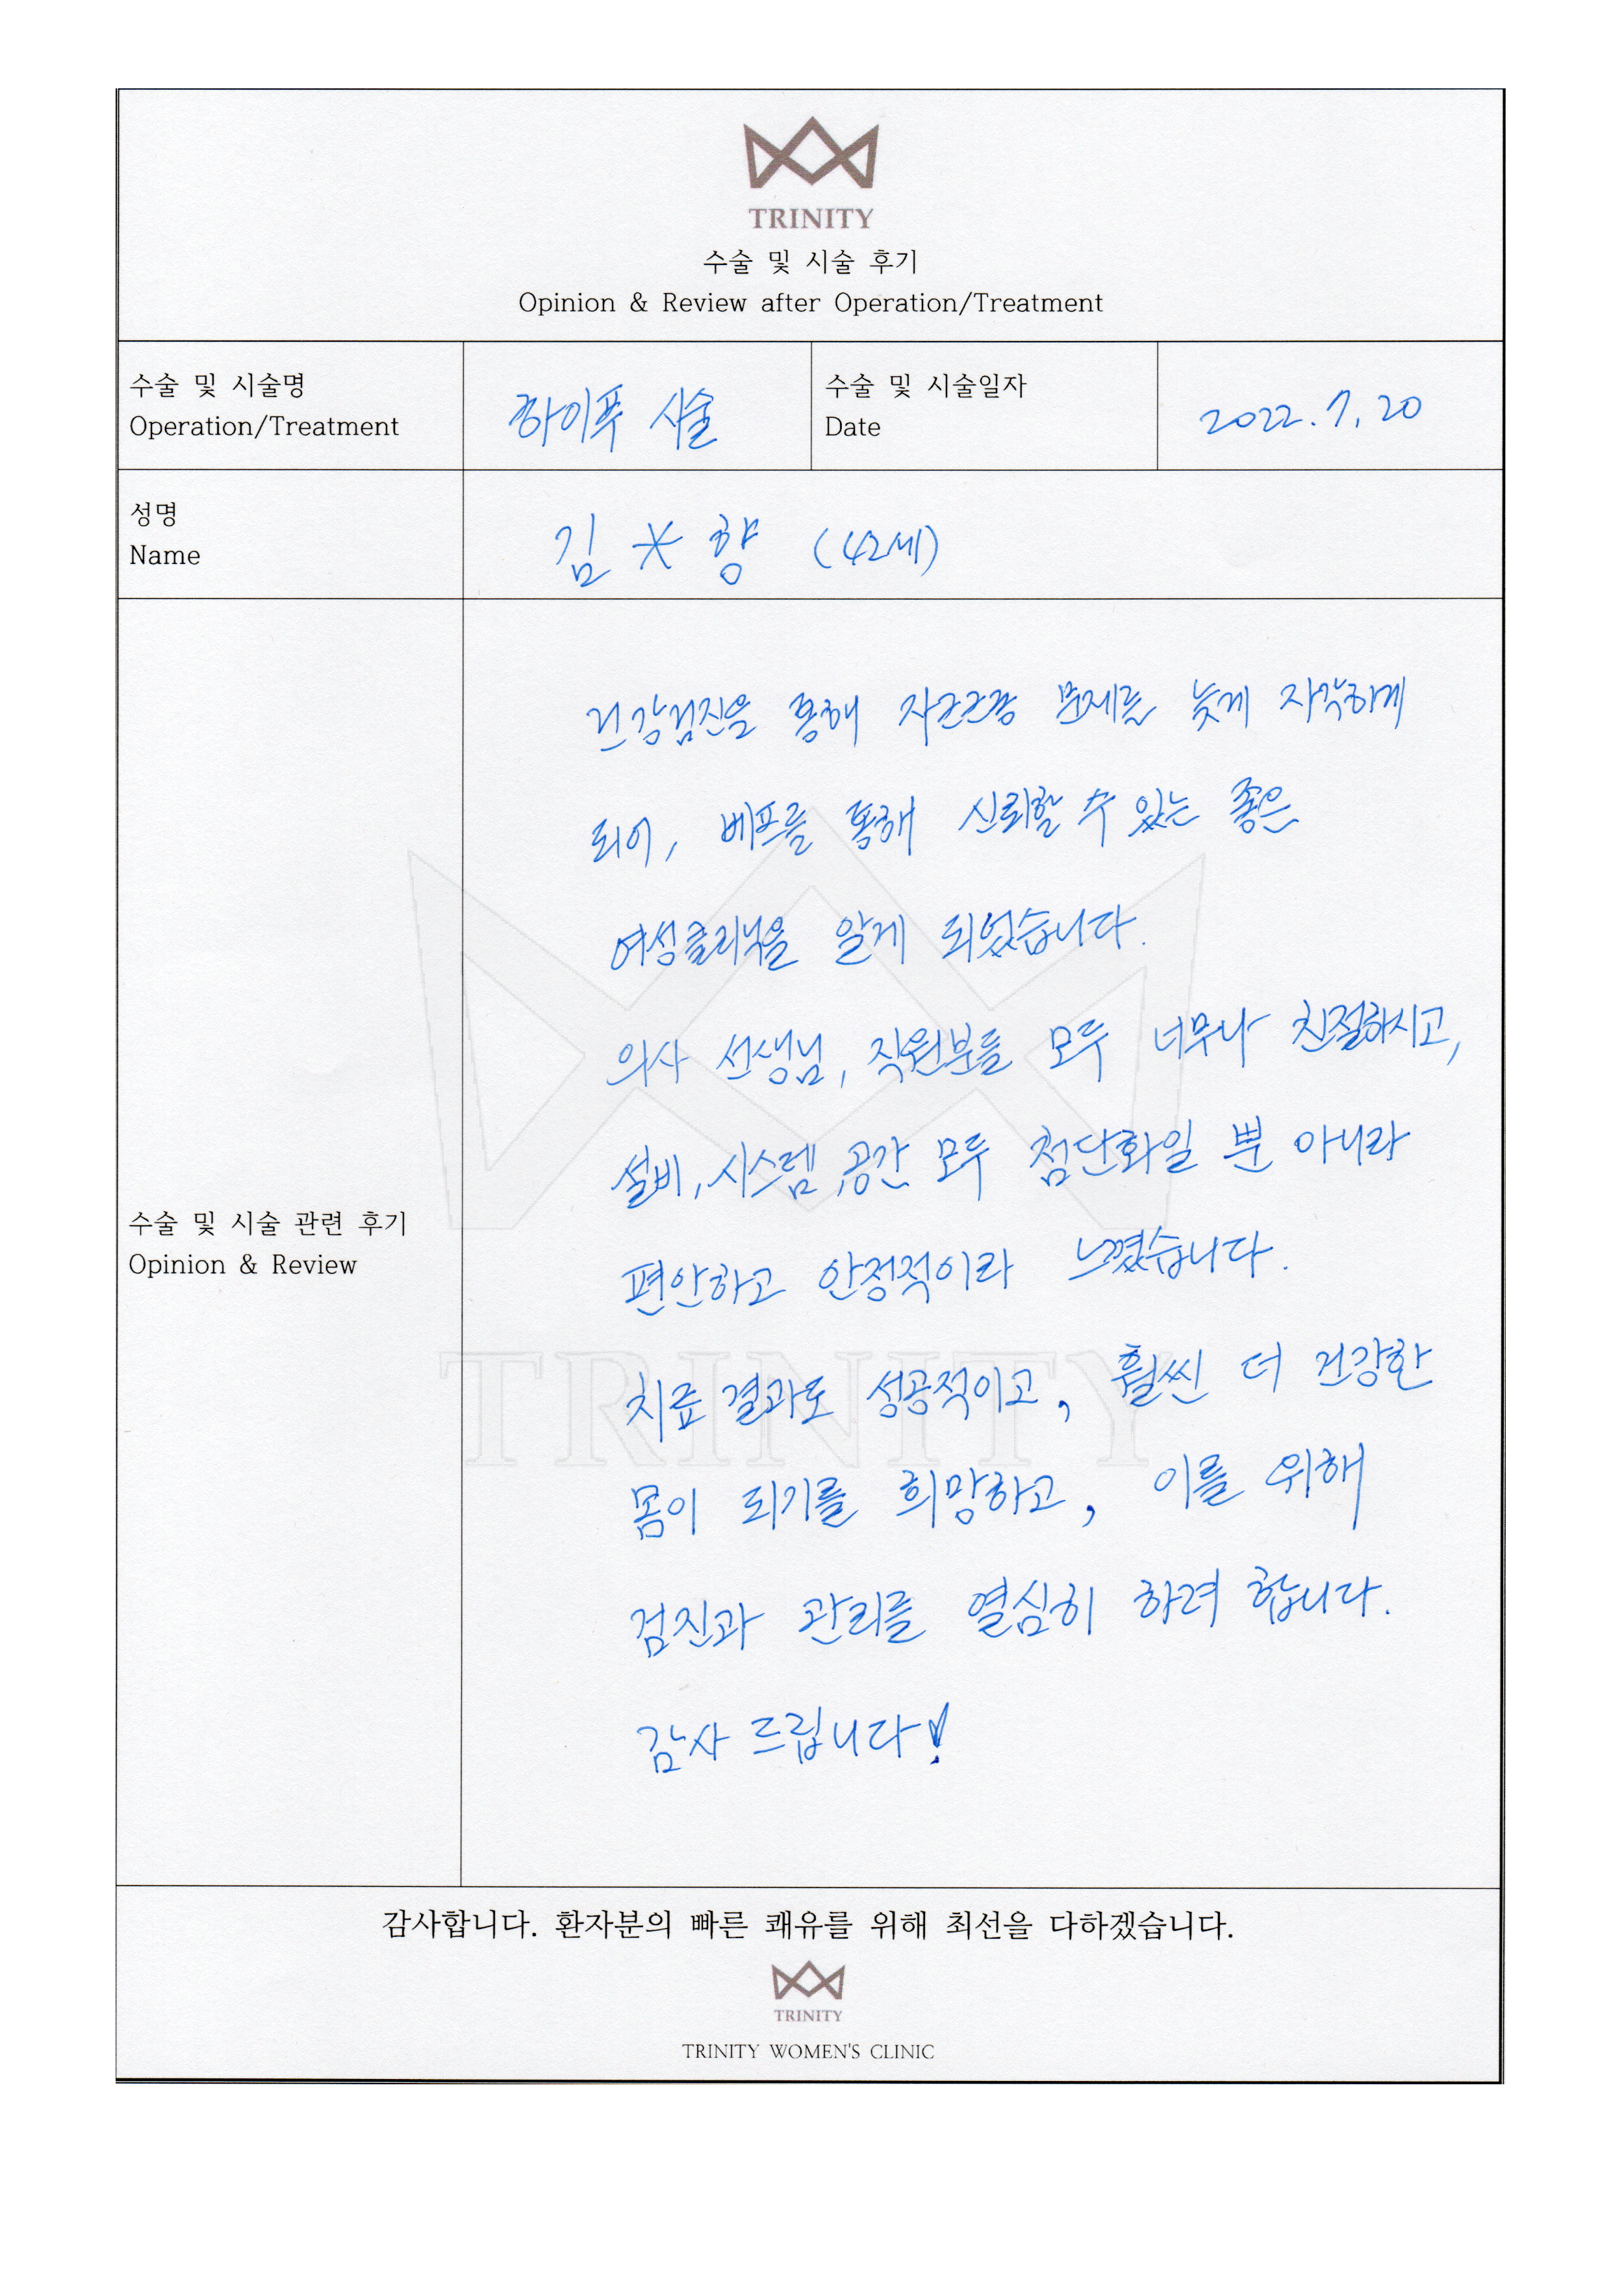 TRINITY
수술 및 시술 후기
Opinion & Review after Operation/Treatment
수술 및 시술명
Operation/Treatment
하이푸 시술
수술 및 시술일자
Date
2022.7.20
성명
Name
김*향 (42세)
수술 및 시술 관련 후기
Opinion & Review
건강검진을 통해 자근근종 문제를 늦게 자각하게
되어, 베프를 통해 신뢰할 수 있는 좋은
여성클리닉을 알게 되었습니다.
의사 선생님, 직원분들 모두 너무나 친절하시고,
설비, 시스템, 공간 모두 첨단화일 뿐 아니라
편안하고 안정적이라 느꼈습니다.
치료 결과도 성공적이고, 훨씬 더 건강한
몸이 되기를 희망하고, 이를 위해
검진과 관리를 열심히 하려 합니다.
감사 드립니다!
TRINITY
감사합니다. 환자분의 빠른 쾌유를 위해 최선을 다하겠습니다.
TRINITY
TRINITY WOMEN'S CLINIC